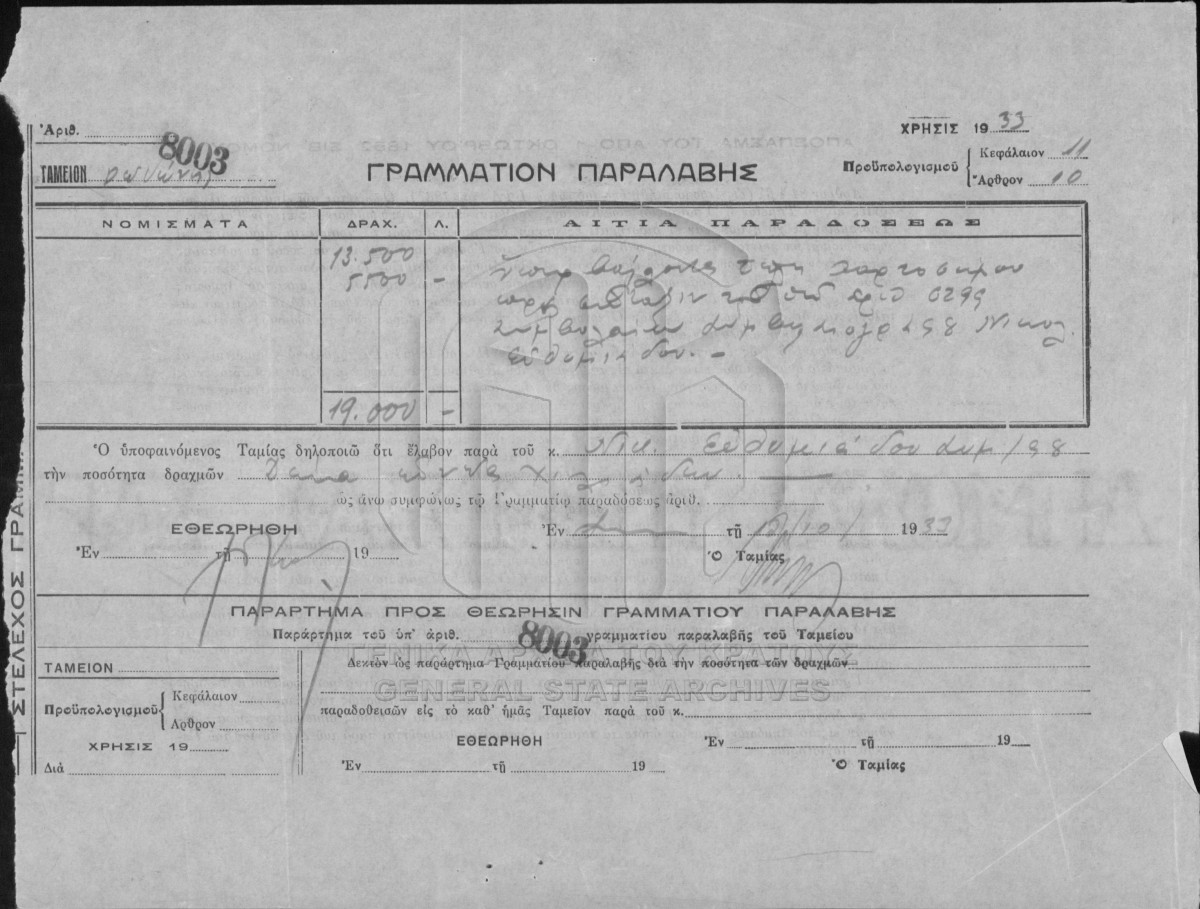 Ἀριθ. 8003
ΧΡΗΣΙΣ 1933
ΤΑΜΕΙΟΝ
ΓΡΑΜΜΑΤΙΟΝ ΠΑΡΑΛΑΒΗΣ
Προϋπολογισμοῦ { Κεφάλαιον 11
Ἄρθρον 10
ΝΟΜΙΣΜΑΤΑ ΔΡΑΧ. Λ. ΑΙΤΙΑ ΠΑΡΑΔΟΣΕΩΣ
13.500
5500 -
τέλη χαρτοσήμου
ἀριθ
Νικολ.
Εὐθυμιάδου. -
19.000 -
Ὁ ὑποφαινόμενος Ταμίας δηλοποιῶ ὅτι ἔλαβον παρὰ τοῦ κ. Νικ. Εὐθυμιάδου
τὴν ποσότητα δραχμῶν Δέκα ἐννέα χιλιάδων. —
ὡς ἄνω συμφώνως τῷ Γραμματίῳ παραδόσεως ἀριθ.
ΕΘΕΩΡΗΘΗ
Ἐν τῇ 1933
Ἐν τῇ 19
Ὁ Ταμίας
ΠΑΡΑΡΤΗΜΑ ΠΡΟΣ ΘΕΩΡΗΣΙΝ ΓΡΑΜΜΑΤΙΟΥ ΠΑΡΑΛΑΒΗΣ
Παράρτημα τοῦ ὑπ' ἀριθ. 8003 γραμματίου παραλαβῆς τοῦ Ταμείου
ΓΕΝΙΚΑ ΑΡΧΕΙΑ ΤΟΥ ΚΡΑΤΟΥΣ
ΤΑΜΕΙΟΝ
Δεκτὸν ὡς παράρτημα Γραμματίου παραλαβῆς διὰ τὴν ποσότητα τῶν δραχμῶν
GENERAL STATE ARCHIVES
Προϋπολογισμοῦ { Κεφάλαιον
Ἄρθρον
παραδοθεισῶν εἰς τὸ καθ' ἡμᾶς Ταμεῖον παρὰ τοῦ κ.
ΧΡΗΣΙΣ 19
ΕΘΕΩΡΗΘΗ
Ἐν τῇ 19
Διά
Ἐν τῇ 19
Ὁ Ταμίας
ΣΤΕΛΕΧΟΣ ΓΡΑΜΜ